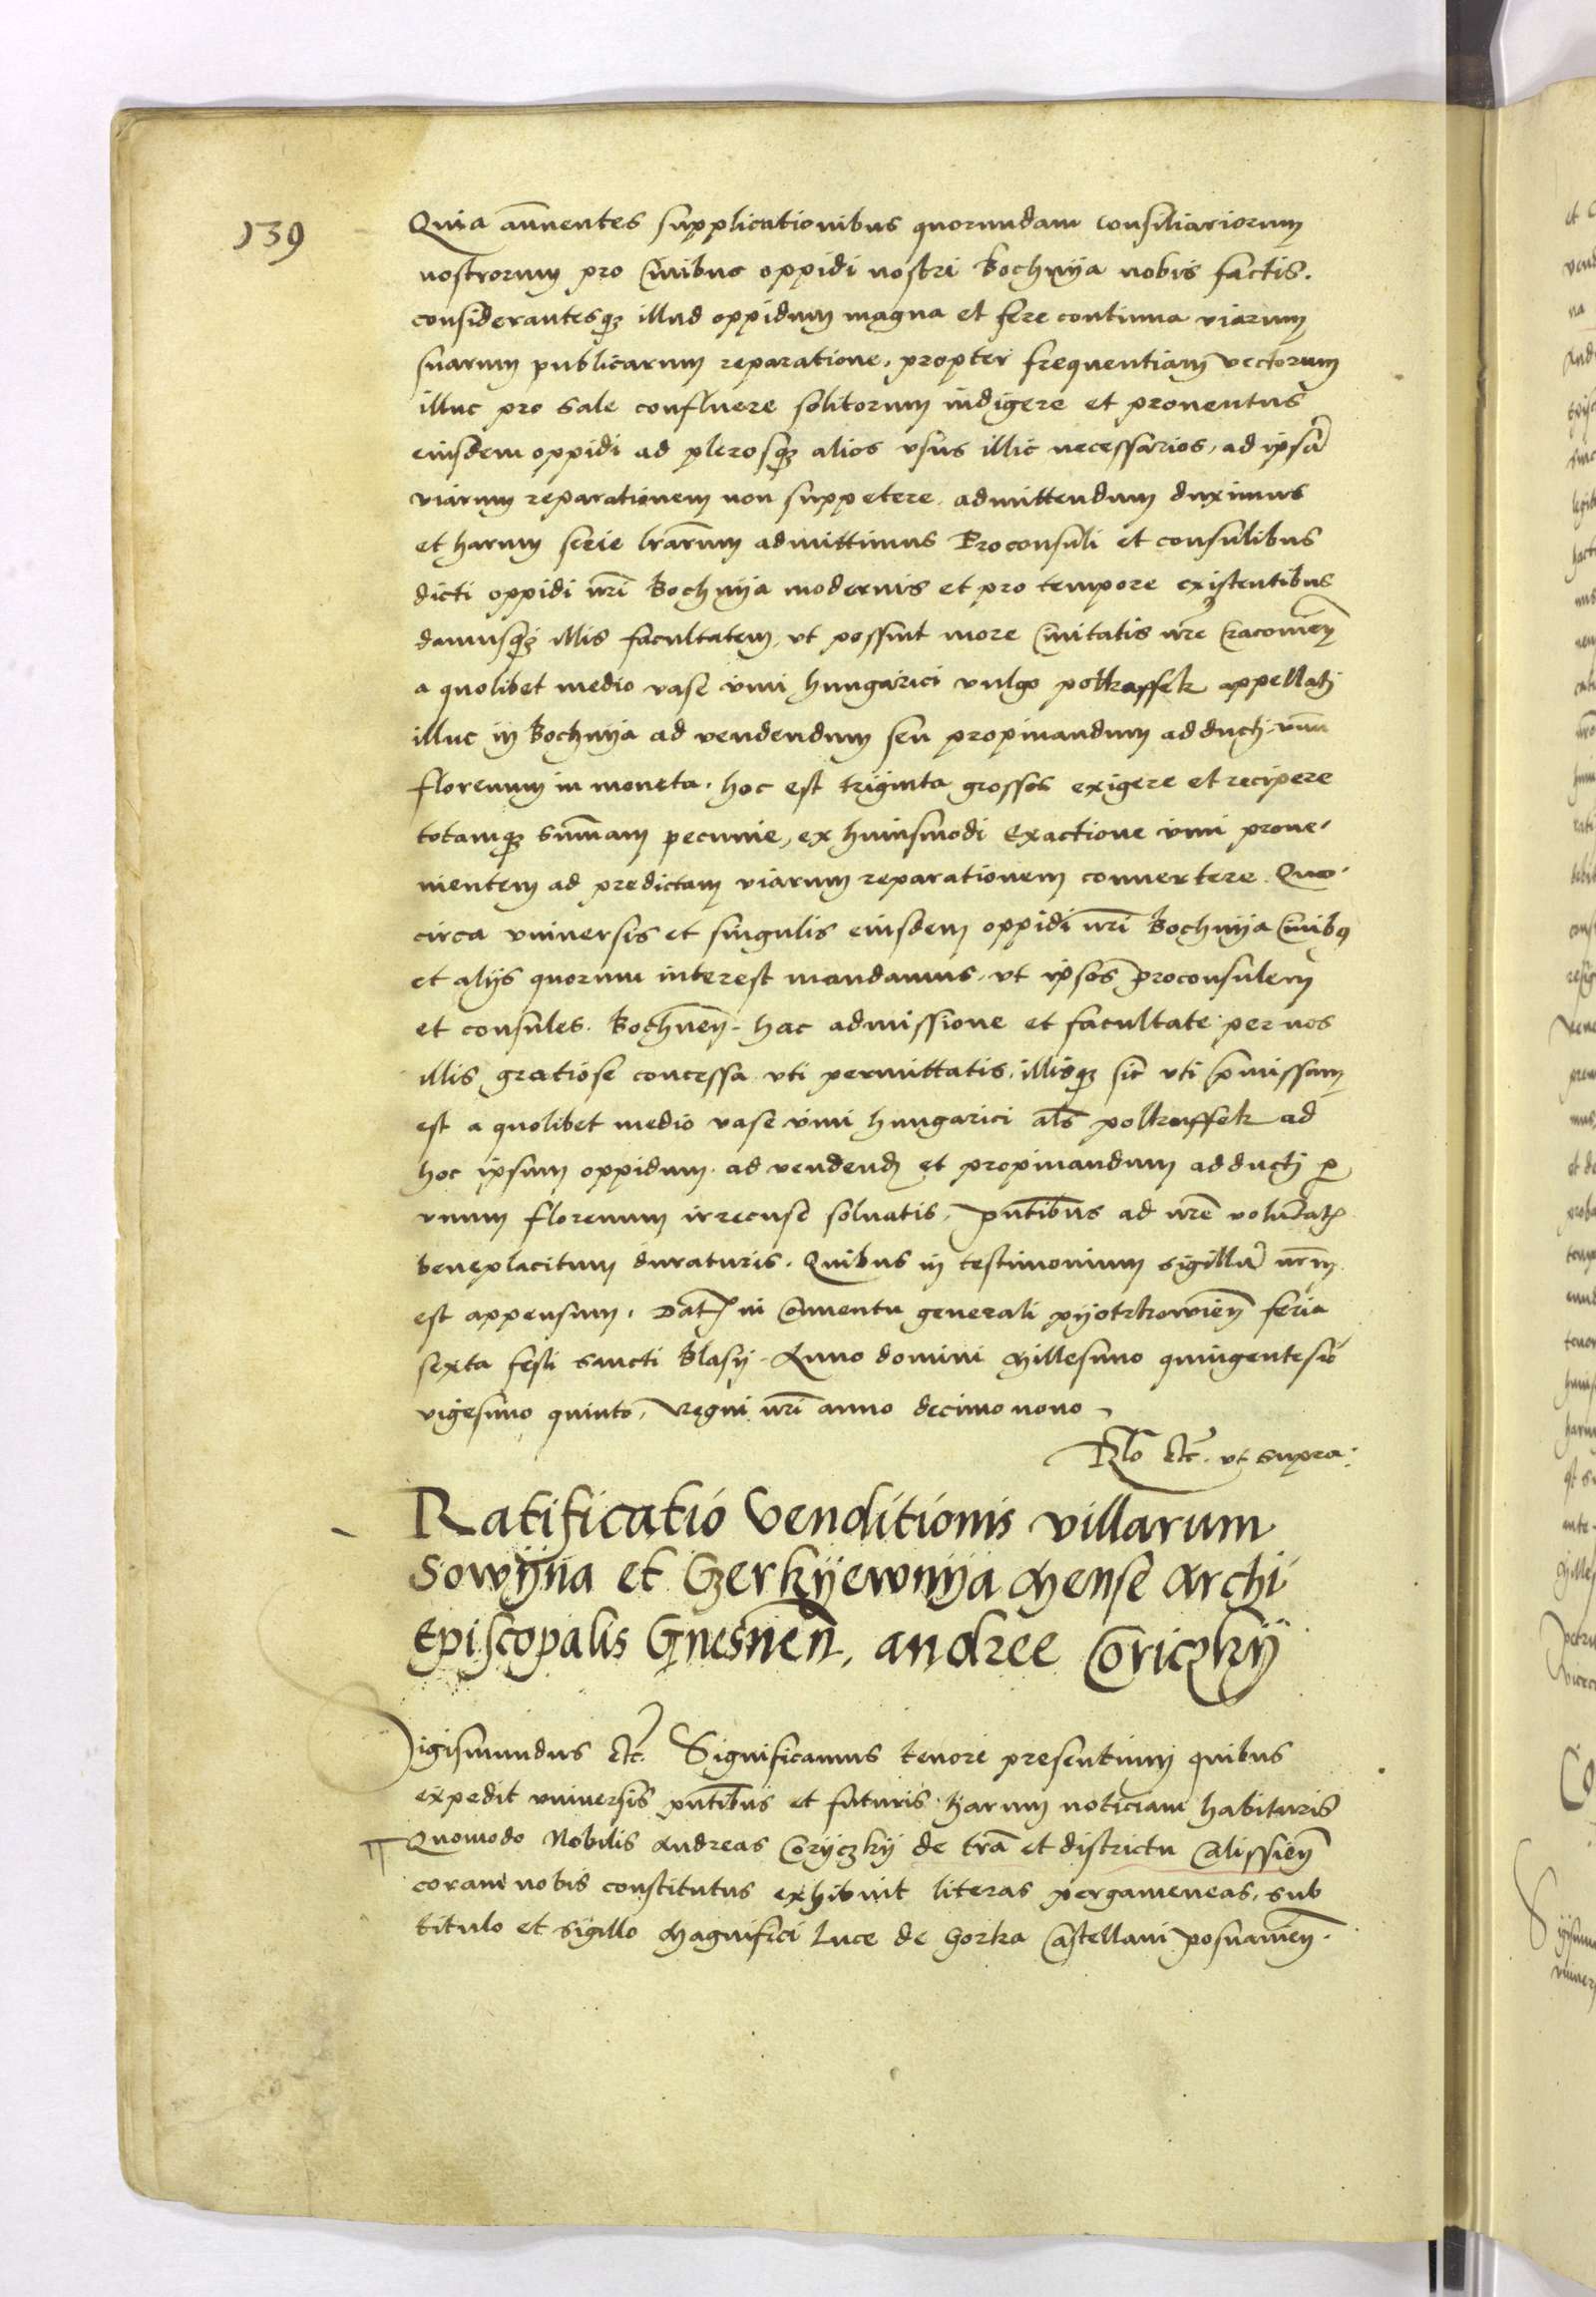 139
Quia annuentes supplicationibus quorundam consiliariorum
nostrorum pro Ciuibus oppidi nostri Bochnya nobis factis.
considerantesq3 illud oppidum magna et fere continua viarum
suarum publicarum reparatione, propter frequentiam vectorum
illuc pro sale confluere solitorum indigere et prouentus
eiusdem oppidi ad plerosq3 alios vsus illic necessarios, ad ipsā
viarum reparationem non suppetere. admittendum duximus
et harum serie lrārum admittimus Proconsuli et consulibus
dicti oppidi nr̄i Bochnya modernis et pro tempore existentibus
damusq3 illis facultatem, vt possint more Ciuitatis nr̄e Cracouien̄
a quolibet medio vase vini hungarici vulgo polkuffek appellatj
illuc in Bochnya ad vendendum seu propinandum adductj vnū
florenum in moneta. hoc est triginta grossos exigere et recipere
totamq3 sum̄am pecunie, ex huiusmodi Exactione vini proue-
nientem ad predictam viarum reparationem conuertere. Quo-
circa vniuersis et singulis eiusdem oppidi nr̄i Bochnya Ciuibꝰ
et alijs quorum interest mandamus, vt ipsos proconsulem
et consules. Bochnen̄. hac admissione et facultate per nos
illis gratiose concessa vti permittatis, illisq3 sic vti p̄missum
est a quolibet medio vase vini hungarici al̄s polkuffek ad
hoc ipsum oppidum ad vendend̄ et propinandum adductj ꝑ
vnum florenum irrecuse soluatis, pn̄tibus ad nr̄e volūtatꝭ
beneplacitum duraturis. Quibus in testimonium sigillū nr̄m
est appensum. Datꝭ in Conuentu generali pyotrkowien̄ feria
sexta festi sancti Blasij. Anno domini Millesimo quingentesiō
vigesimo quinto, Regni nr̄i anno decimo nono
Rl̄o etc̄. vt supra.
Ratificatio Venditionis villarum
Sowyna et Czerkyewnya Mense Archi
Episcopalis Gnesnen̄, andree Coriczky
Sigismundus etc̄. Significamus tenore presentium quibus
expedit vniuersis pn̄tibus et futuris harum noticiam habituris
Quomodo Nobilis Andreas Coryczky de tr̄a et districtu Calissien̄
coram nobis constitutus exhibuit literas pergameneas, sub
titulo et sigillo Magnifici Luce de Gorka Castellani posnanien̄.